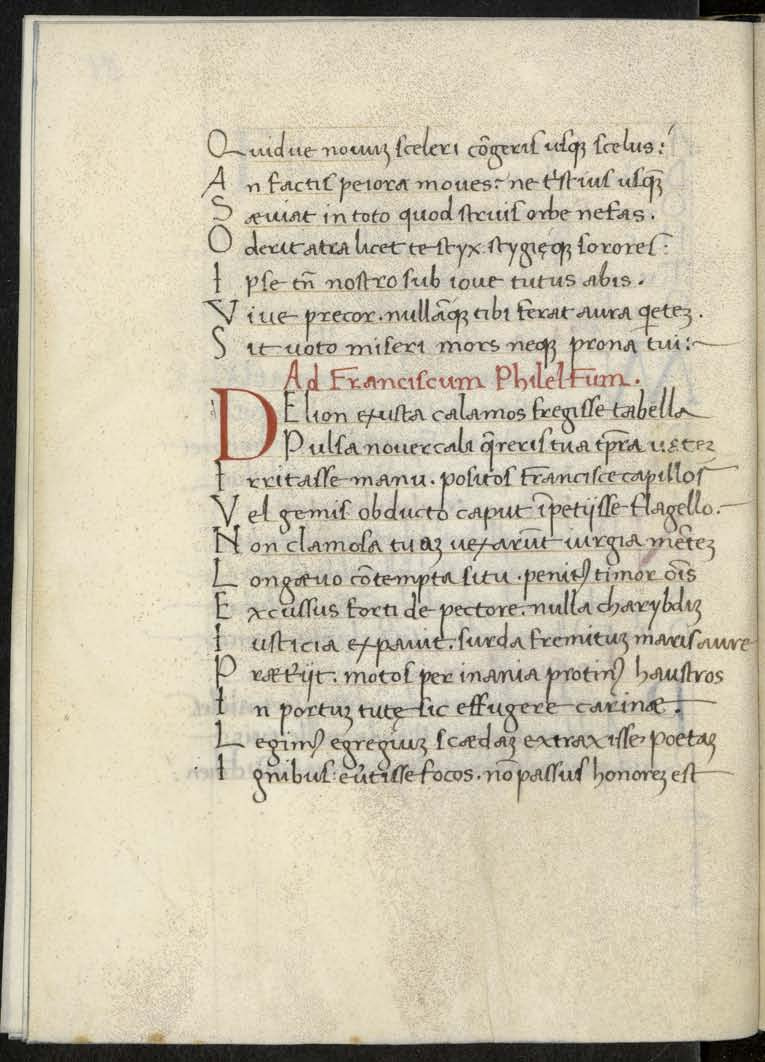 Quidue nouuꝫ sceleri cōgeris usqꝫ scelus:
An factis peiora moues: ne tristius usqꝫ
Sæuiat in toto quod struis orbe nefas.
Oderit atra licet te styx. stygięqꝫ sorores:
Ipse tn̄ nostro sub ioue tutus abis.
Viue precor. nullāqꝫ tibi ferat aura q̄eteꝫ.
Sit uoto miseri mors neqꝫ prona tui:
Ad Franciscum Philelfum.
DElion exusta calamos fregisse tabella
Pulsa nouercali q̄reris tua tp̄ra
Irritasse manu. positos Francisce capillos
Vel gemis obducto caput īpetijsse flagello.
Non clamosa tuaꝫ uexarūt iurgia mēteꝫ
Longæuo cōtempta situ. penitꝰ timor oīs
Excussus forti de pectore. nulla charybdiꝫ
Iusticia expauit. surda fremituꝫ maris aure
Præterijt. motos per inania protinꝰ haustros
In portuꝫ tutę sic effugere carinæ.
Legimꝰ egregiuuꝫ scædaꝫ extraxisse poetaꝫ
Ignibus: eūtisse focos. nō passus honoreꝫ est